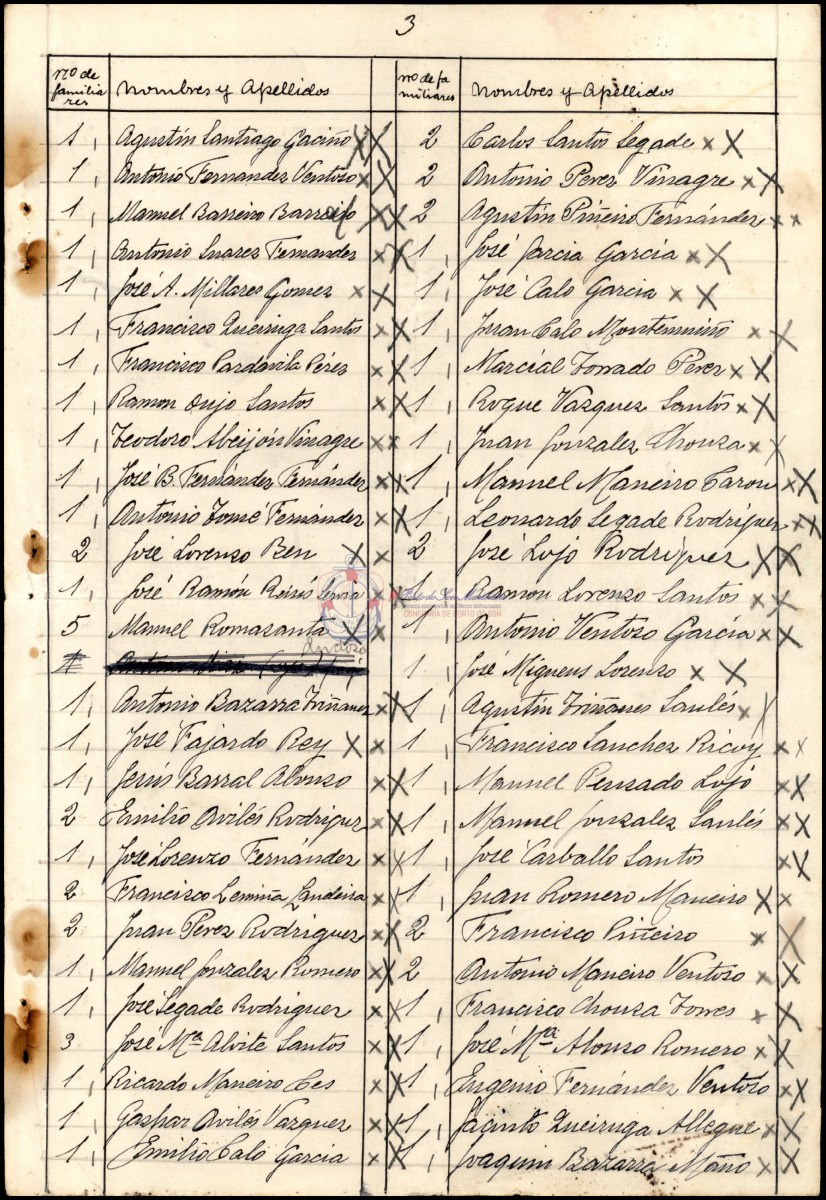 3
nº de familiares
Nombres y Apellidos
nº de familiares
Nombres y Apellidos
1, Agustín Santiago Gaciño
1, Antonio Fernandez Ventoso
1, Manuel Barreiro Barreiro
1, Antonio Suarez Fernandez
1, José A. Millares Gomez
1, Francisco Queiruga Santos
1, Francisco Pardavila Pérez
1, Ramon Oujo Santos
1, Teodoro Abeijón Vinagre
1, José B. Fernández Fernández
1, Antonio Tomé Fernández
2 José Lorenzo Ben
1, José Ramón Reirís
5 Manuel Romasanta
dudoso
1 Antonio
1, Antonio Bazarra Triñanes
1, José Fajardo Rey
1, Jesús Barral Alonso
2 Emilio Avilés Rodriguez
1, José Lorenzo Fernández
2 Francisco Lemiña Landeira
2 Juan Perez Rodriguez
1, Manuel Gonzalez Romero
1, José Segade Rodriguez
3 José Mª Alvite Santos
1, Ricardo Maneiro Ces
1, Gaspar Avilés Vazquez
1, Emilio Calo Garcia
2 Carlos Santos Segade
2 Antonio Perez Vinagre
2 Agustín Piñeiro Fernández
1, José Garcia García
1, José Calo Garcia
1, Juan Calo
1, Marcial Torrado Perez
1, Roque Vazquez Santos
1, Juan Gonzalez Chouza
1, Manuel Maneiro Carou
1, Leonardo Segade Rodriguez
2 José Lojo Rodriguez
1, Ramon Lorenzo Santos
CONFRARÍA DE PORTO DO SON
1, Antonio Ventoso García
1, José Migueus Lorenzo
1, Agustín Triñanes Saulés
1, Francisco Sanchez Ricoy
1, Manuel Pensado Lojo
1, Manuel Gonzalez Saulés
1, José Carballo Santos
1, Juan Romero Maneiro
2 Francisco Piñeiro
2 Antonio Maneiro Ventoso
1, Francisco Chouza Torres
1, José Mª Alonso Romero
1, Eugenio Fernández Ventoso
1, Jacinto Queiruga Allegue
1, Joaquin Bazarra Maño